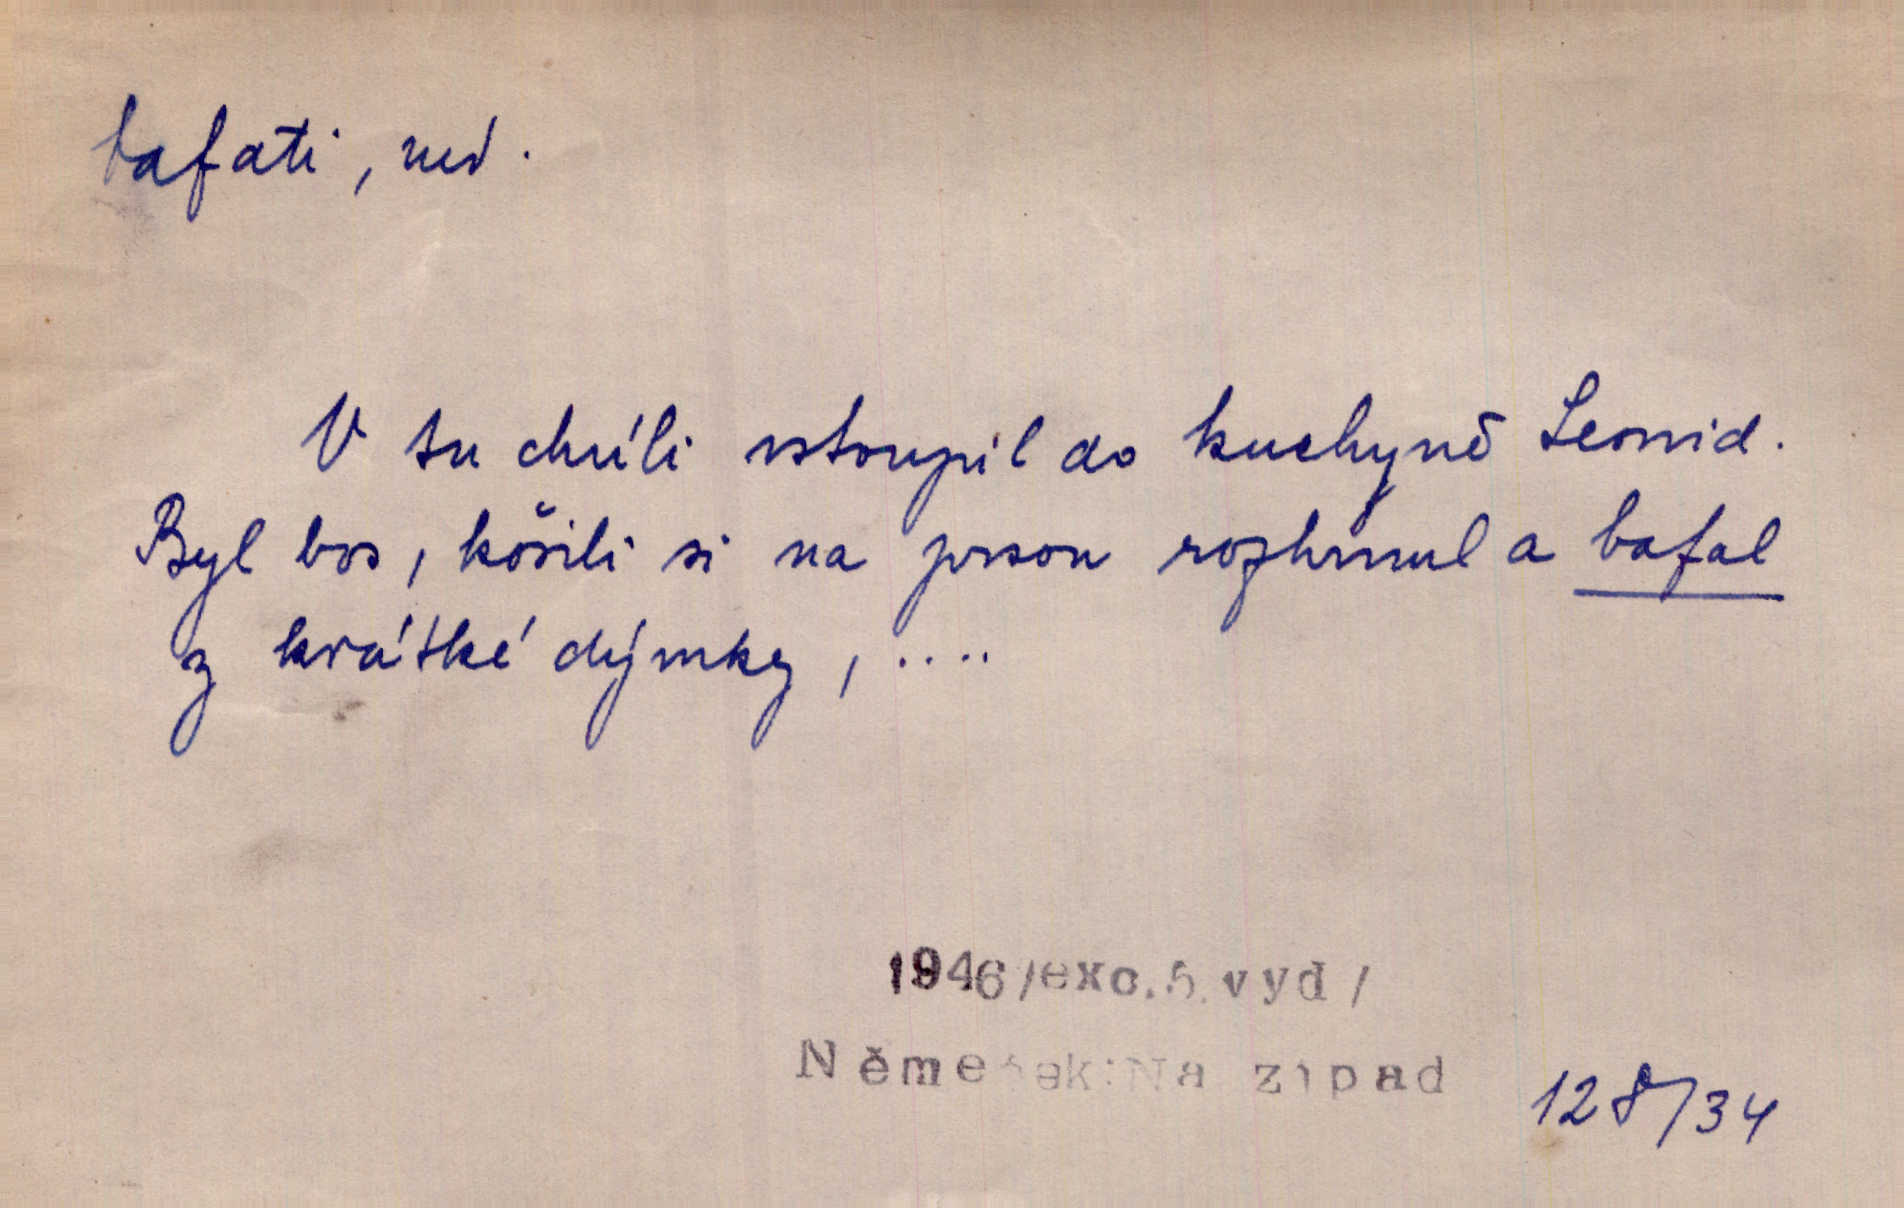 bafati, ned.
V tu chvíli vstoupil do kuchyně Leonid.
Byl bos, košili si na prsou rozhrnul a bafal
z krátké dýmky, ....
1946/exc.5.vyd/
Němeček:Na západ
128/34